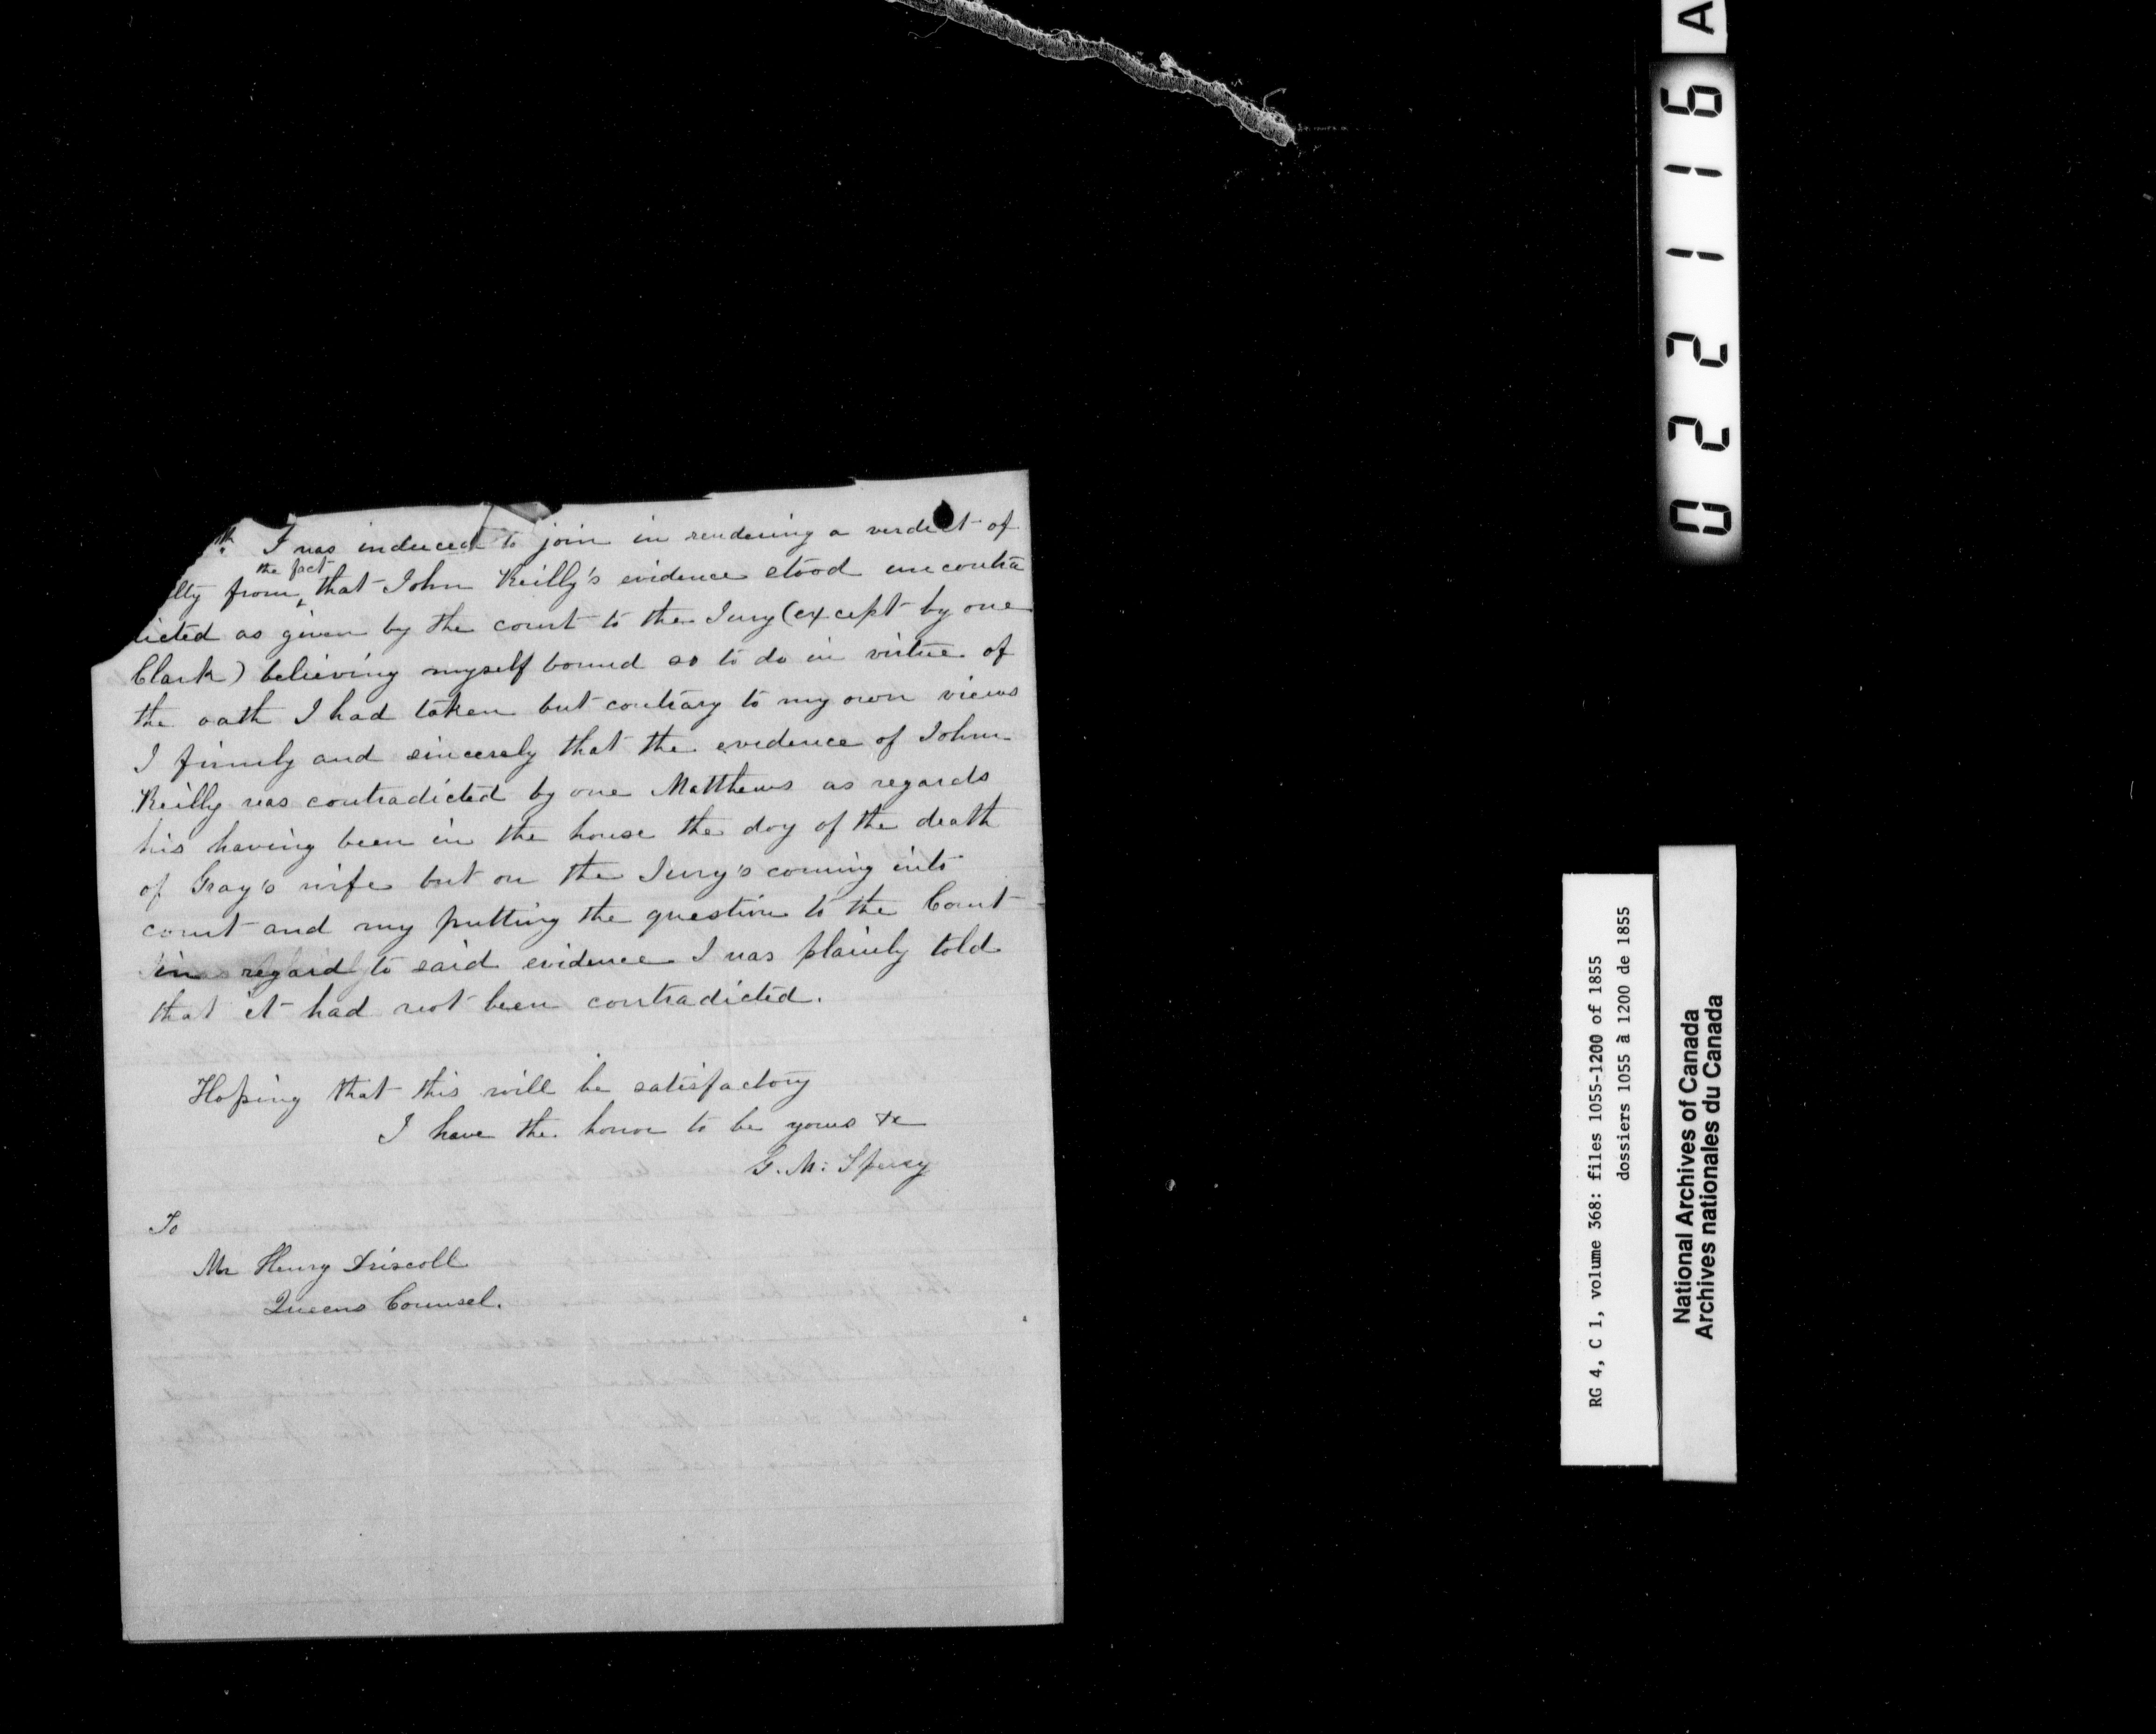 th. I was induced to join in rendering a verdict of
ilty from the fact that John Reilly's evidence stood uncontra
dicted as given by the court to the Jury (except by one
Clark) believing myself bound so to do in virtue of
the oath I had taken but contrary to my own views
I firmly and sincerely that the evidence of John
Reilly was contradicted by one Matthews as regards
his having been in the house the day of the death
of Gray's wife but on the Jury's coming into
court and my putting the question to the Court
in regard to said evidence I was plainly told
that it had not been contradicted.
Hoping that this will be satisfactory
I have the honor to be yours &c
G. M:
To
Mr Henry Driscoll
Queens Counsel.
022116
A
RG 4, C 1, volume 368: files 1055-1200 of 1855
dossiers 1055 à 1200 de 1855
National Archives of Canada
Archives nationales du Canada